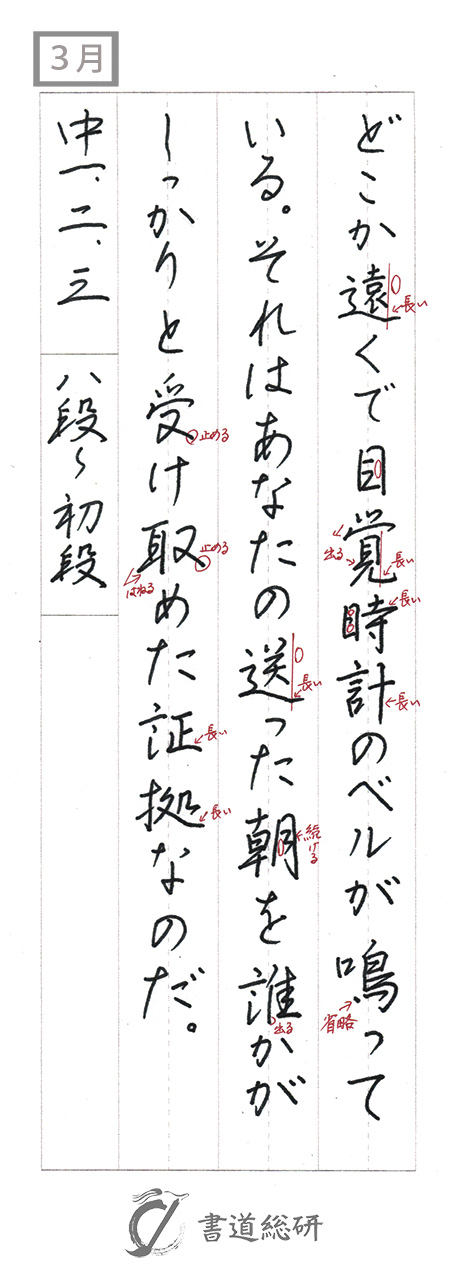 3月
どこか遠くで目覚時計のベルが鳴って
いる。それはあなたの送った朝を誰かが
しっかりと受け取めた証拠なのだ。
中一、二、三
八段〜初段
長い
出る
長い
長い
長い
省略
長い
続ける
出る
止める
止める
はねる
長い
長い
書道総研